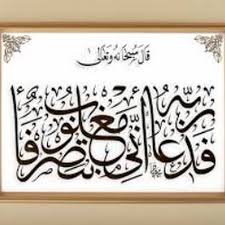 قَالَ سُبْحَانَهُ وَتَعَالَى
فَدَعَا رَبَّهُ أَنِّي مَغْلُوبٌ فَانتَصِرْ